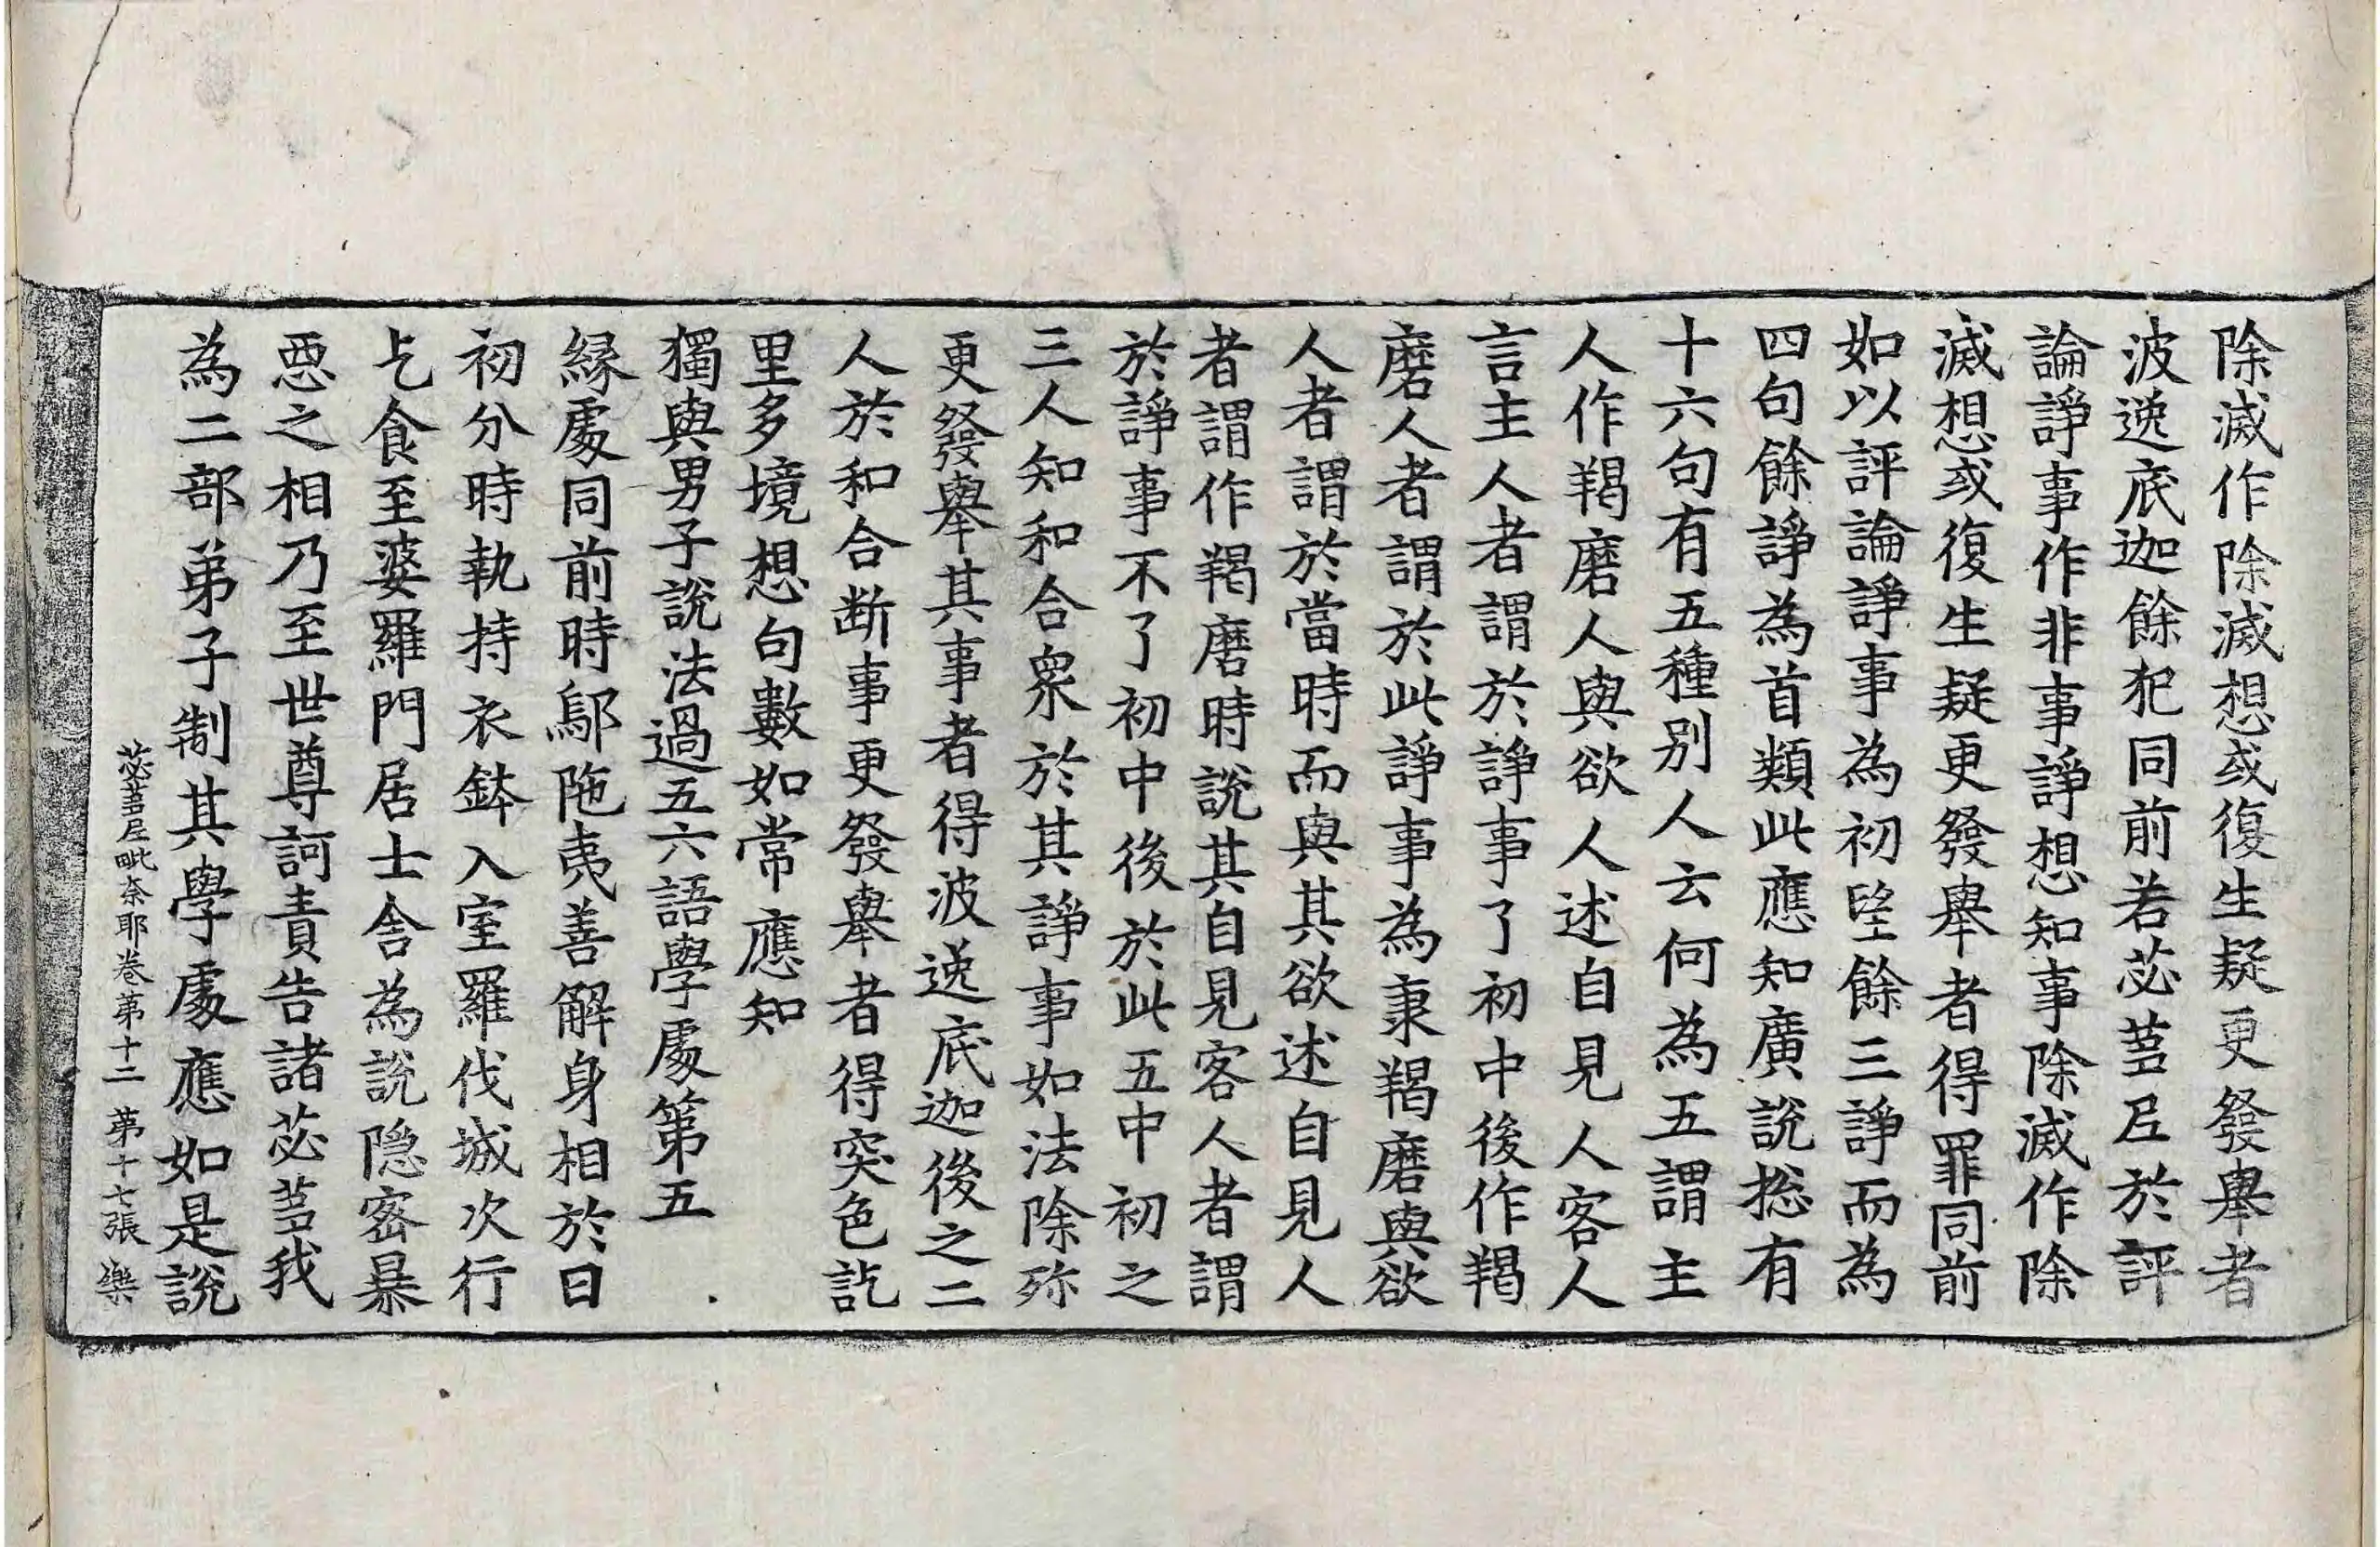 除滅作除滅想或復生疑更發舉者
波逸底迦餘犯同前若苾芻尼於評
論諍事作非事諍想知事除滅作除
滅想或復生疑更發舉者得罪同前
如以評論諍事為初望餘三諍而為
四句餘諍為首類此應知廣說揔有
十六句有五種別人云何為五謂主
人作羯磨人與欲人述自見人客人
言主人者謂於諍事了初中後作羯
磨人者謂於此諍事為秉羯磨與欲
人者謂於當時而與其欲述自見人
者謂作羯磨時說其自見客人者謂
於諍事不了初中後於此五中初之
三人知和合衆於其諍事如法除殄
更發舉其事者得波逸底迦後之二
人於和合断事更發舉者得突色訖
里多境想句數如常應知
獨與男子說法過五六語學處第五
緣處同前時鄔陁夷善解身相於日
初分時執持衣鉢入室羅伐城次行
乞食至婆羅門居士舍為說隐密暴
惡之相乃至世尊訶責告諸苾芻我
為二部弟子制其學處應如是說
苾芻尼毗奈耶卷第十二 第十七張 樂